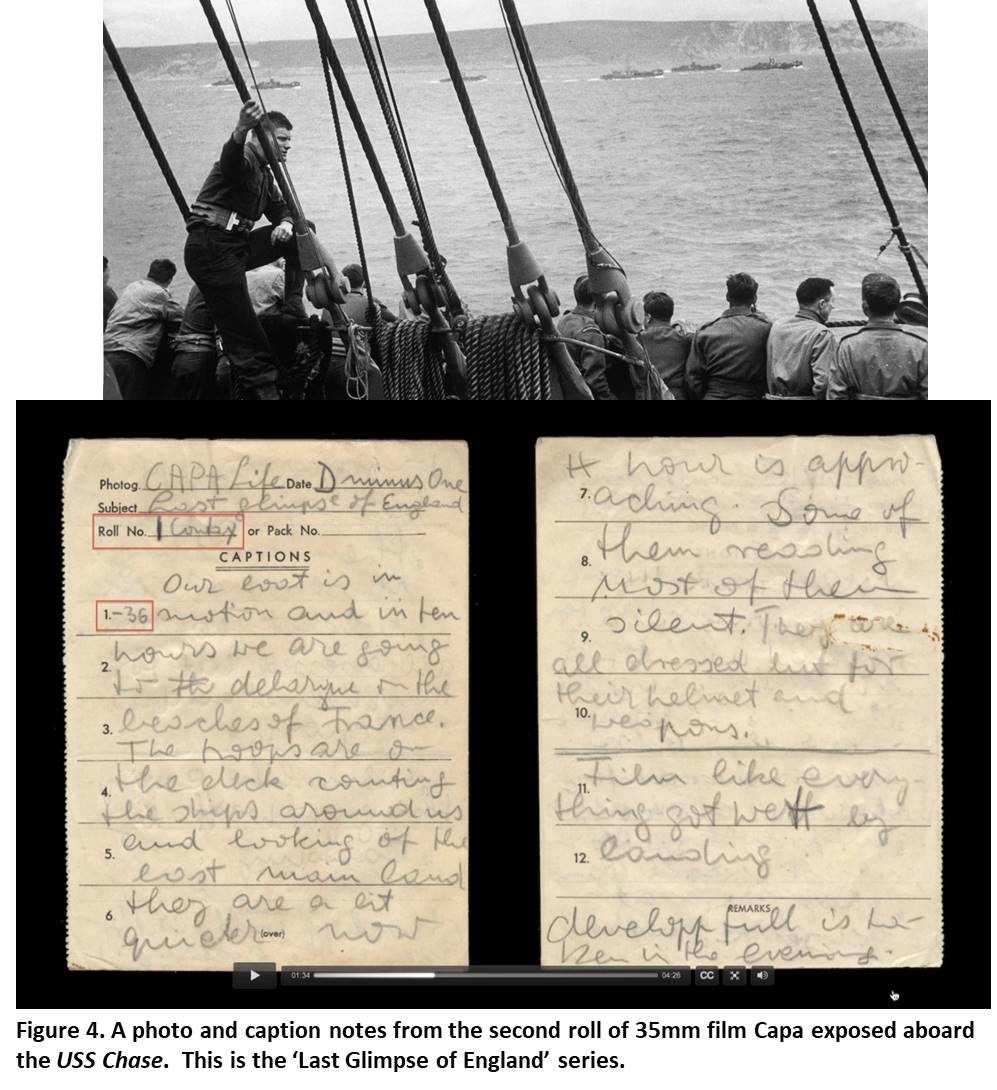 Photog. CAPA Life Date D minus One
Subject Last glimpse of England
Roll No. 1 Contax or Pack No.
CAPTIONS
Our boat is in
1.-36 motion and in ten
hours we are going
2. to the debarque on the
3. beaches of France.
The troops are on
4. the deck counting
the ships around us
5. and looking of the
last main land
6. they are a bit
quicker (over) now
H hour is appro-
7. aching. Some of
8. them reading
most of them
9. silent. They are
all dressed but for
their helmet and
10. weapons.
11. Film like every-
thing got wett by
12. landing
REMARKS
developp full is ta-
ken in the evening.
01:34 04:26 CC
Figure 4. A photo and caption notes from the second roll of 35mm film Capa exposed aboard
the USS Chase. This is the ‘Last Glimpse of England’ series.